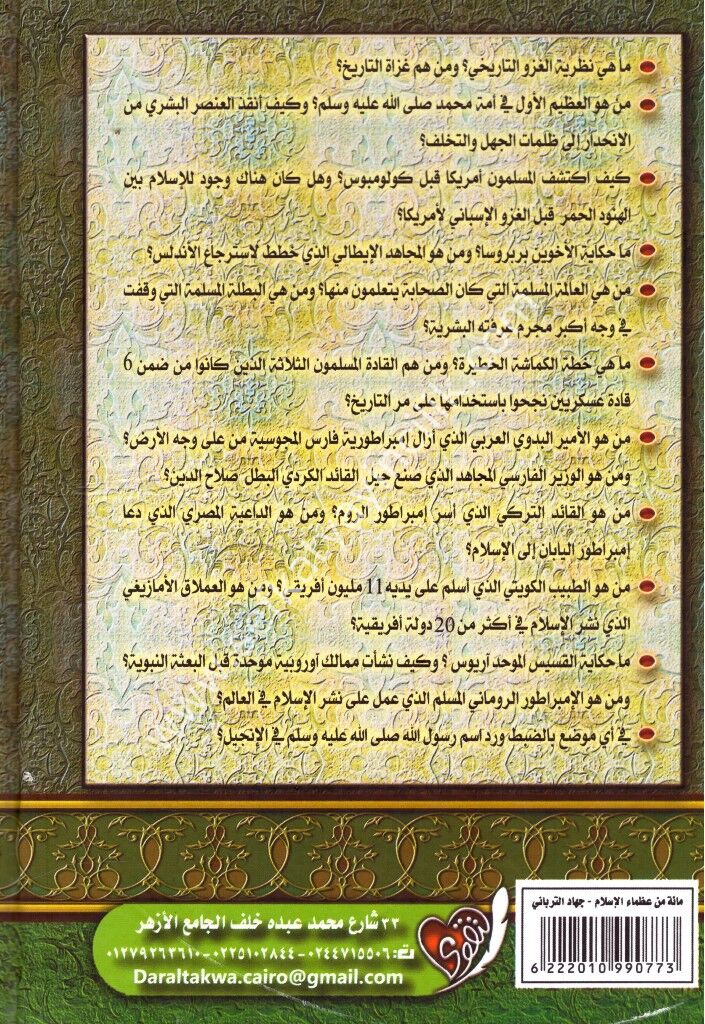 ما هي نظرية الغزو التاريخي؟ ومن هم غزاة التاريخ؟
من هو العظيم الأول في أمة محمد صلى الله عليه وسلم؟ وكيف أنقذ العنصر البشري من
الانحدار إلى ظلمات الجهل والتخلف؟
كيف اكتشف المسلمون أمريكا قبل كولومبوس؟ وهل كان هناك وجود للإسلام بين
الهنود الحمر قبل الغزو الإسباني لأمريكا؟
ما حكاية الأخوين بربروسا؟ ومن هو المجاهد الإيطالي الذي خطط لاسترجاع الأندلس؟
من هي العالمة المسلمة التي كان الصحابة يتعلمون منها؟ ومن هي البطلة المسلمة التي وقفت
في وجه أكبر مجرم عرفته البشرية؟
ما هي خطة الكماشة الخطيرة؟ ومن هم القادة المسلمون الثلاثة الذين كانوا من ضمن 6
قادة عسكريين نجحوا باستخدامها على مر التاريخ؟
من هو الأمير البدوي العربي الذي أزال إمبراطورية فارس المجوسية من على وجه الأرض؟
ومن هو الوزير الفارسي المجاهد الذي صنع جيل القائد الكردي البطل صلاح الدين؟
من هو القائد التركي الذي أسر إمبراطور الروم؟ ومن هو الداعية المصري الذي دعا
إمبراطور اليابان إلى الإسلام؟
من هو الطبيب الكويتي الذي أسلم على يديه 11 مليون أفريقي؟ ومن هو العملاق الأمازيغي
الذي نشر الإسلام في أكثر من 20 دولة أفريقية؟
ما حكاية القسيس الموحد آريوس؟ وكيف نشأت ممالك أوروبية موحدة قبل البعثة النبوية؟
ومن هو الإمبراطور الروماني المسلم الذي عمل على نشر الإسلام في العالم؟
في أي موضع بالضبط ورد اسم رسول الله صلى الله عليه وسلم في الإنجيل؟
مائة من عظماء الإسلام - جهاد الترباني
6 222010 990773
٣٣ شارع محمد عبده خلف الجامع الأزهر
ت: ٠٢٤٤٧١٥٥٠٦ - ٠٢٢٥١٠٢٨٤٤ - ٠١٢٧٩٢٦٣٦١٠
Daraltakwa.cairo@gmail.com